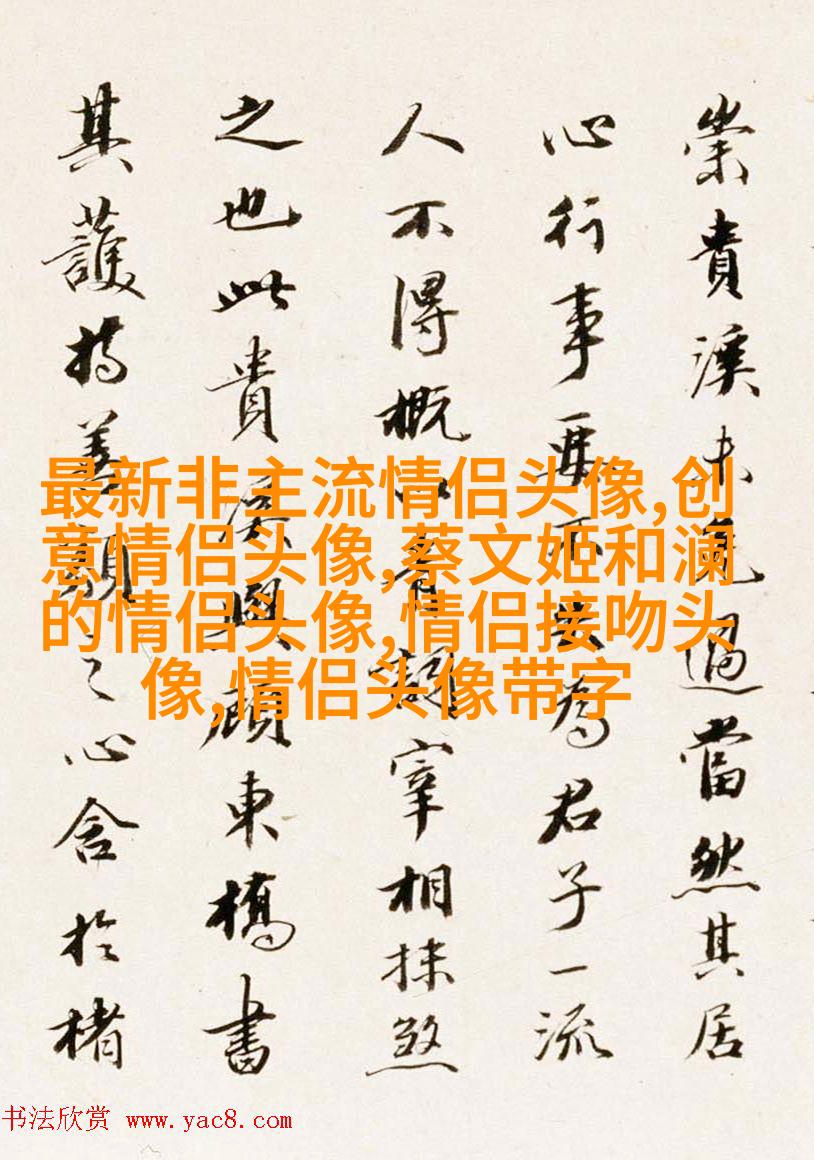 崇貴溪未免過當然其居
心行事要不失為君子一流
人不得概以青詞宰相抹煞
之也此貴溪與顧東橋書
其護持善類之心含於楮
最新非主流情侣头像,创
意情侣头像,蔡文姬和澜
的情侣头像,情侣接吻头
像,情侣头像带字
书法欣赏 www.yac8.com